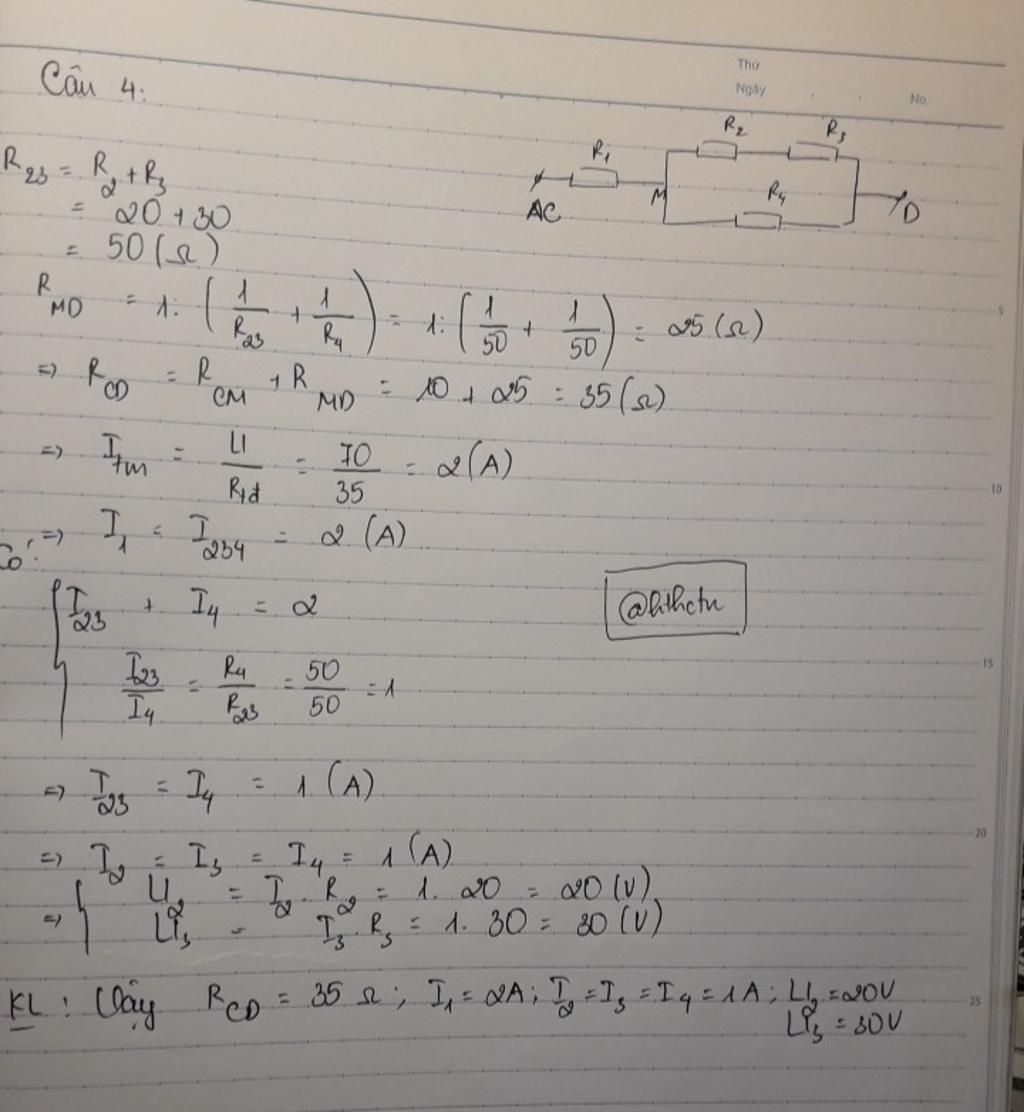 Thứ
Ngày
No.
Câu 4:
R₁
R₂
R₃
R₄
AC
M
D
R₂₃ = R₂ + R₃
= 20 + 30
= 50 (Ω)
R_MD = 1 : (1/R₂₃ + 1/R₄) = 1 : (1/50 + 1/50) = 25 (Ω)
=> R_CD = R_CM + R_MD = 10 + 25 = 35 (Ω)
=> I_tm = U/R_tđ = 70/35 = 2 (A)
=> I₁ = I₂₃₄ = 2 (A)
Có:
{ I₂₃ + I₄ = 2
I₂₃/I₄ = R₄/R₂₃ = 50/50 = 1
=> I₂₃ = I₄ = 1 (A)
=> I₂ = I₃ = I₄ = 1 (A)
=> { U₂ = I₂ . R₂ = 1. 20 = 20 (V)
U₃ = I₃ R₃ = 1. 30 = 30 (V)
KL : Vậy R_CD = 35 Ω ; I₁ = 2A ; I₂ = I₃ = I₄ = 1A ; U₂ = 20V
U₃ = 30V
5
10
15
20
25